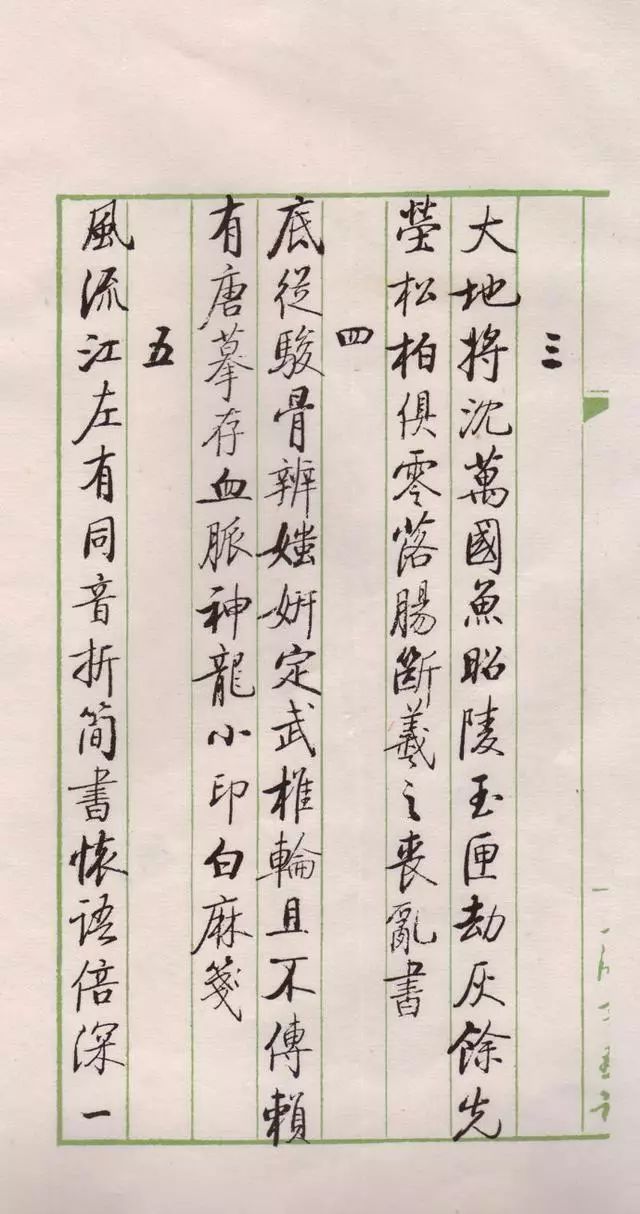 三
大地將沈萬國魚昭陵玉匣劫灰餘先
塋松柏俱零落腸斷羲之喪亂書
四
底從駿骨辨媸妍定武椎輪且不傳賴
有唐摹存血脈神龍小印白麻箋
五
風流江左有同音折簡書懷語倍深一